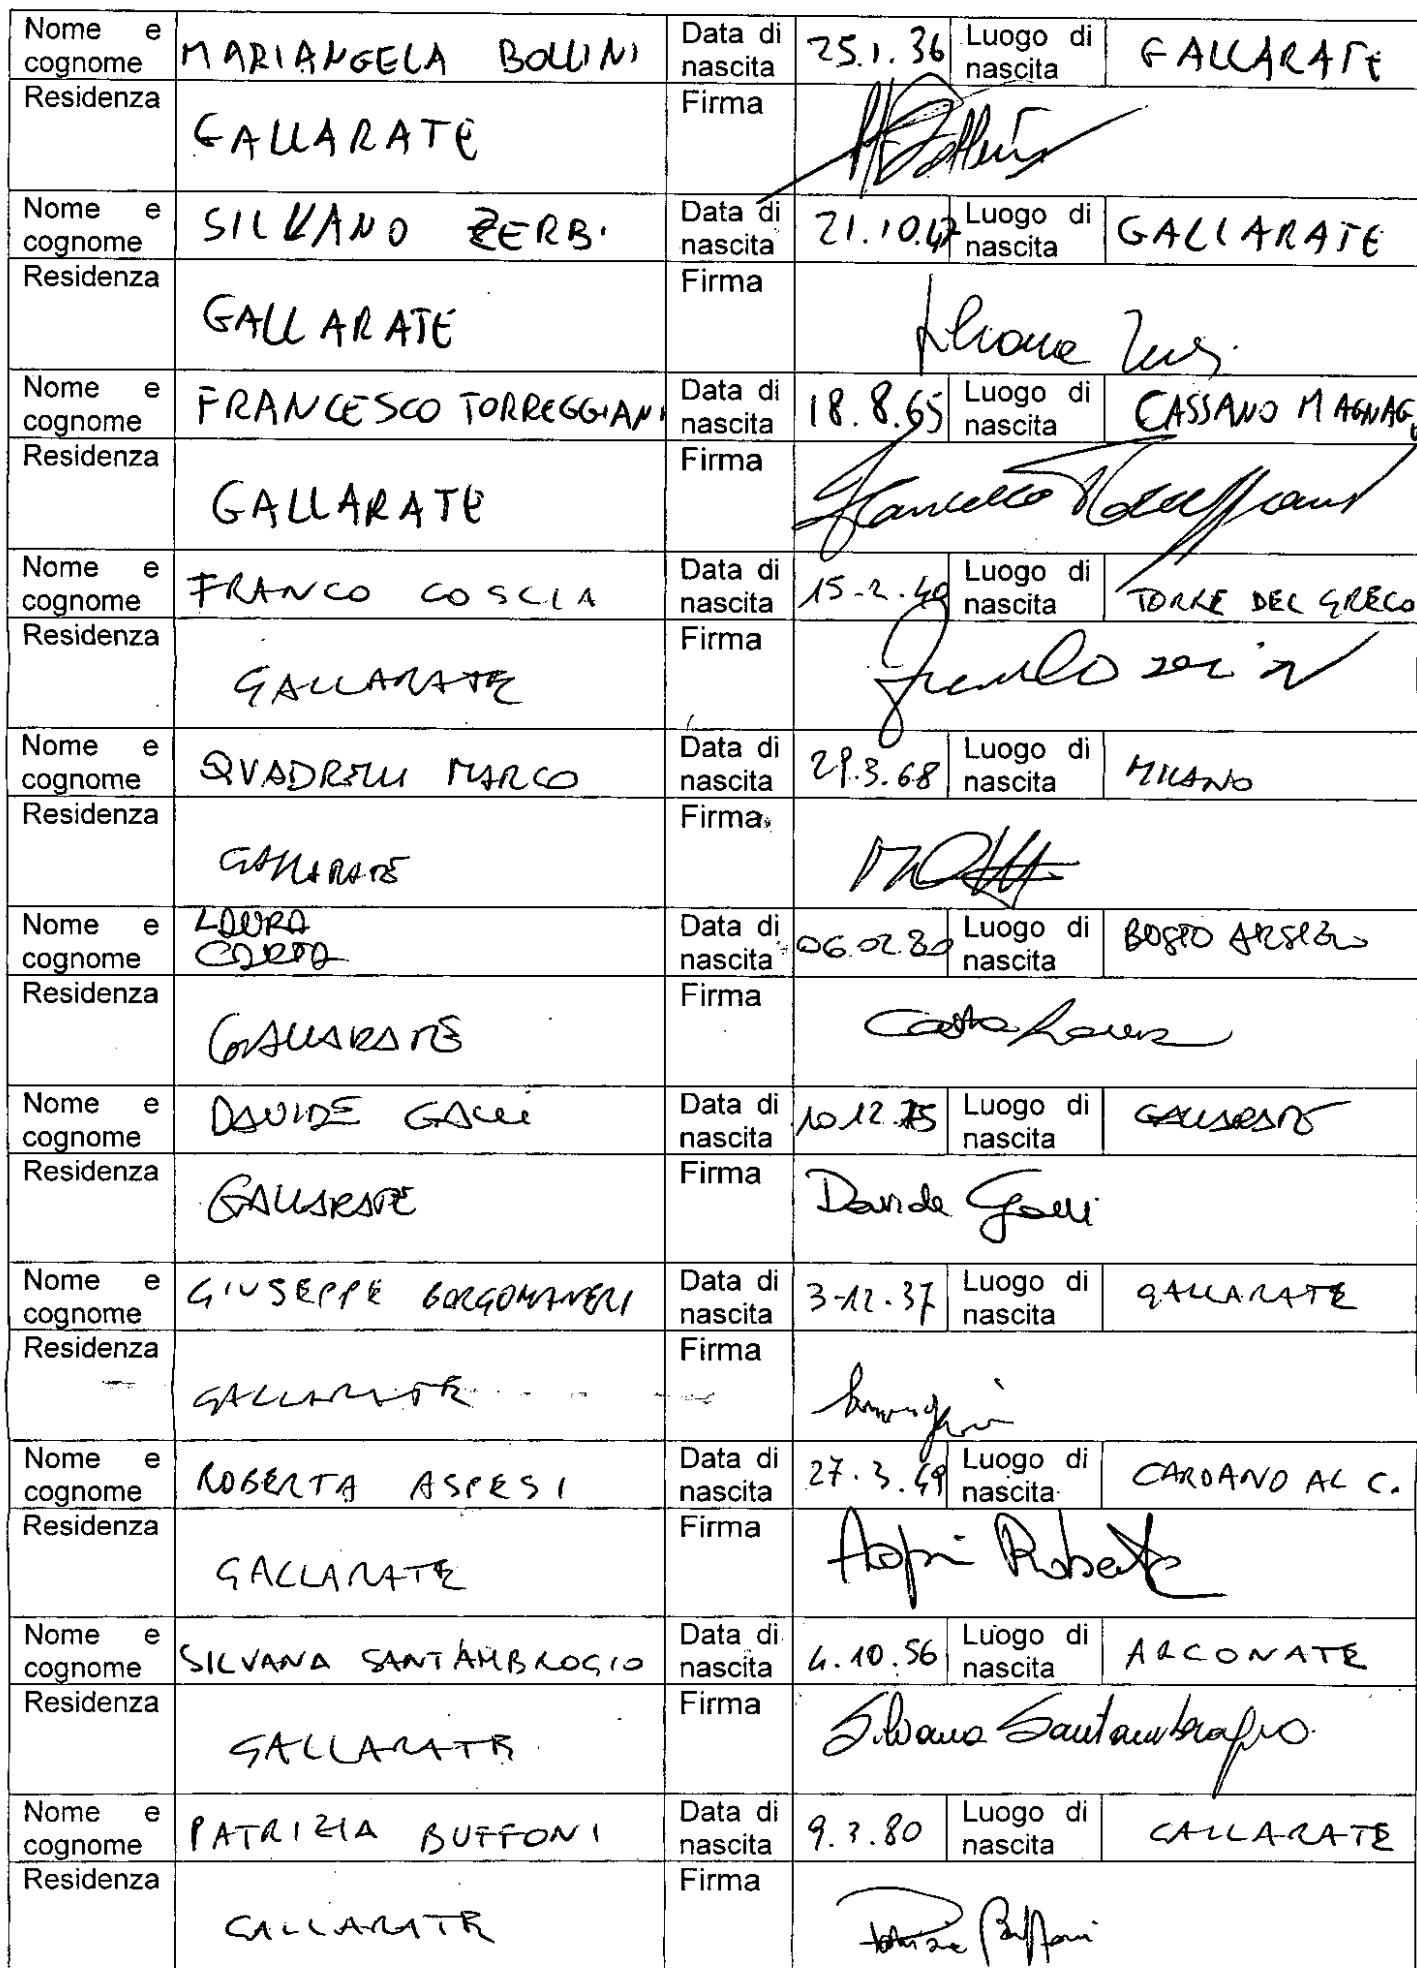 Nome e cognome MARIANGELA BOLLINI Data di nascita 25.1.36 Luogo di nascita GALLARATE
Residenza GALLARATE Firma
Nome e cognome SILVANO ZERBI Data di nascita 21.10.47 Luogo di nascita GALLARATE
Residenza GALLARATE Firma
Nome e cognome FRANCESCO TORREGGIANI Data di nascita 18.8.65 Luogo di nascita CASSANO MAGNAGO
Residenza GALLARATE Firma Francesco Torreggiani
Nome e cognome FRANCO COSCIA Data di nascita 15-2.49 Luogo di nascita TORRE DEL GRECO
Residenza GALLARATE Firma
Nome e cognome QUADRELLI MARCO Data di nascita 29.3.68 Luogo di nascita MILANO
Residenza GALLARATE Firma
Nome e cognome LAURA Data di nascita 06.02.80 Luogo di nascita BUSTO ARSIZIO
Residenza GALLARATE Firma Laura
Nome e cognome DAVIDE GALLI Data di nascita 10.12.75 Luogo di nascita GALLARATE
Residenza GALLARATE Firma Davide Galli
Nome e cognome GIUSEPPE BORGOMANERI Data di nascita 3-12.37 Luogo di nascita GALLARATE
Residenza GALLARATE Firma
Nome e cognome ROBERTA ASPESI Data di nascita 27.3.49 Luogo di nascita CARDANO AL C.
Residenza GALLARATE Firma Aspesi Roberta
Nome e cognome SILVANA SANTAMBROGIO Data di nascita 4.10.56 Luogo di nascita ARCONATE
Residenza GALLARATE Firma Silvana Santambrogio
Nome e cognome PATRIZIA BUFFONI Data di nascita 9.3.80 Luogo di nascita GALLARATE
Residenza GALLARATE Firma Patrizia Buffoni